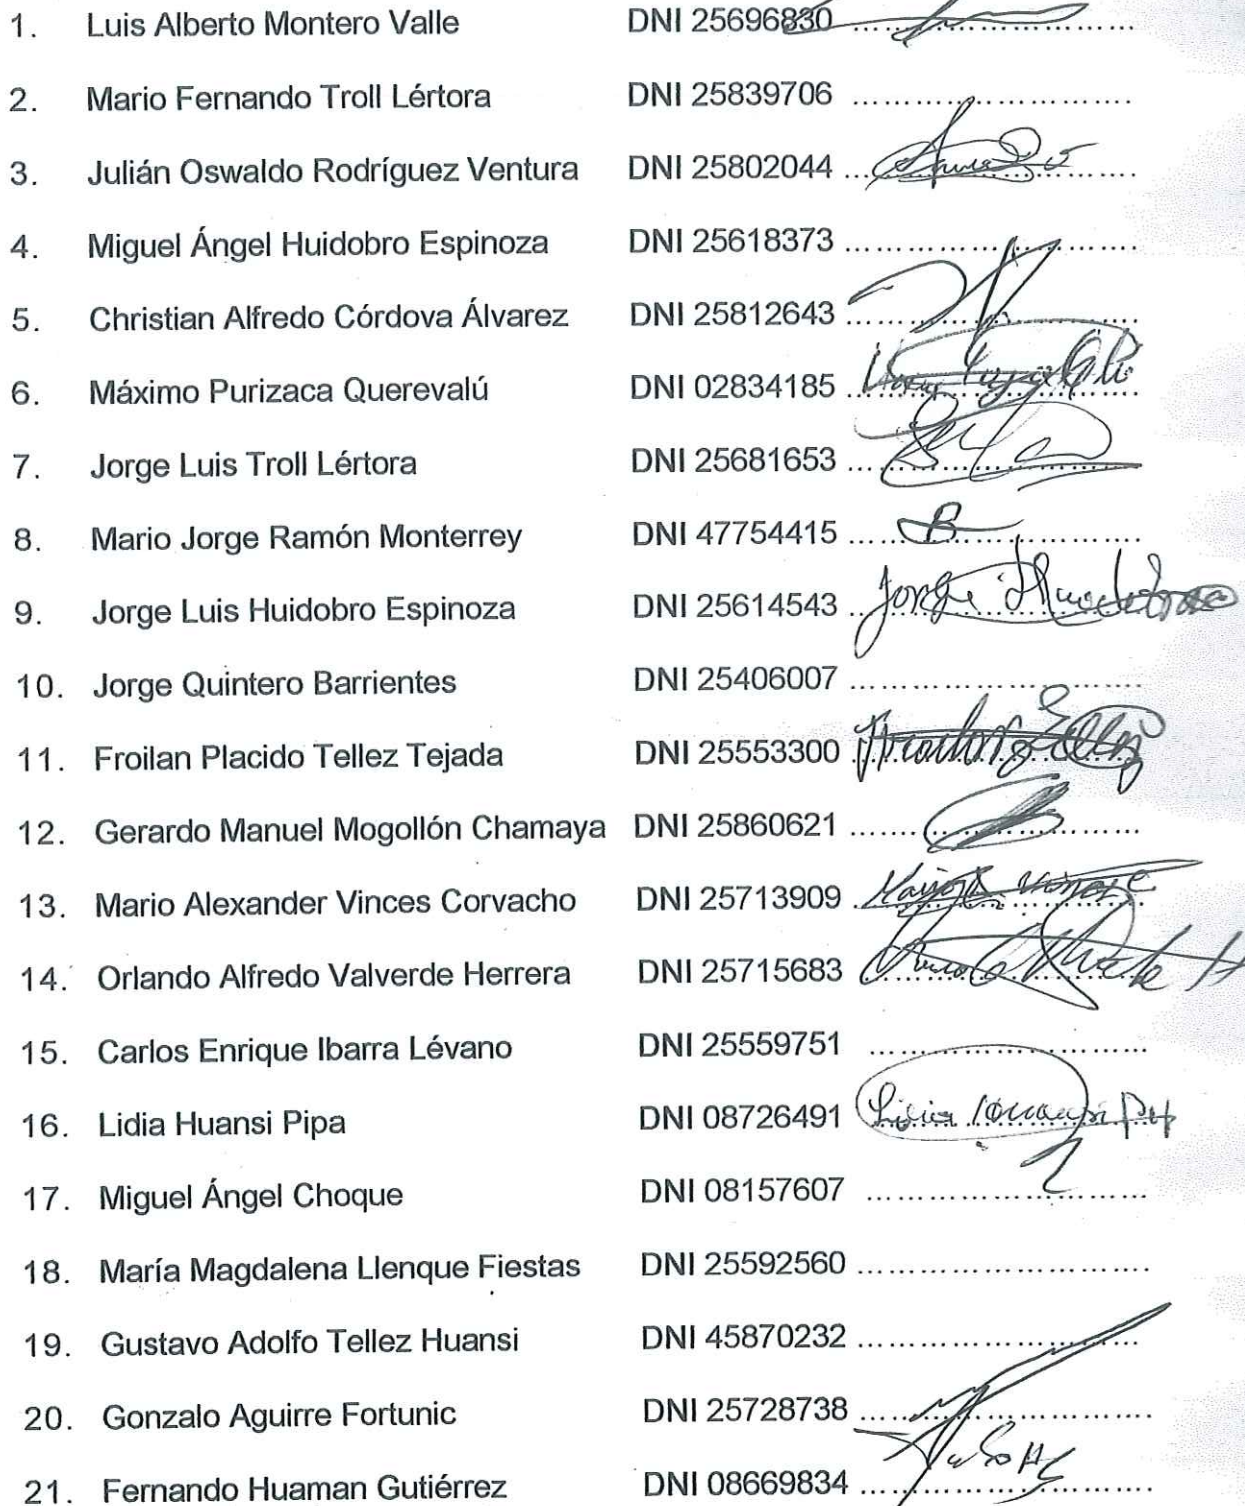 1. Luis Alberto Montero Valle DNI 25696830 ..............................
2. Mario Fernando Troll Lértora DNI 25839706 ..............................
3. Julián Oswaldo Rodríguez Ventura DNI 25802044 ..............................
4. Miguel Ángel Huidobro Espinoza DNI 25618373 ..............................
5. Christian Alfredo Córdova Álvarez DNI 25812643 ..............................
6. Máximo Purizaca Querevalú DNI 02834185 ..............................
7. Jorge Luis Troll Lértora DNI 25681653 ..............................
8. Mario Jorge Ramón Monterrey DNI 47754415 ..............................
9. Jorge Luis Huidobro Espinoza DNI 25614543 .............................. Jorge
10. Jorge Quintero Barrientes DNI 25406007 ..............................
11. Froilan Placido Tellez Tejada DNI 25553300 ..............................
12. Gerardo Manuel Mogollón Chamaya DNI 25860621 ..............................
13. Mario Alexander Vinces Corvacho DNI 25713909 ..............................
14. Orlando Alfredo Valverde Herrera DNI 25715683 ..............................
15. Carlos Enrique Ibarra Lévano DNI 25559751 ..............................
16. Lidia Huansi Pipa DNI 08726491 ..............................
17. Miguel Ángel Choque DNI 08157607 ..............................
18. María Magdalena Llenque Fiestas DNI 25592560 ..............................
19. Gustavo Adolfo Tellez Huansi DNI 45870232 ..............................
20. Gonzalo Aguirre Fortunic DNI 25728738 ..............................
21. Fernando Huaman Gutiérrez DNI 08669834 ..............................